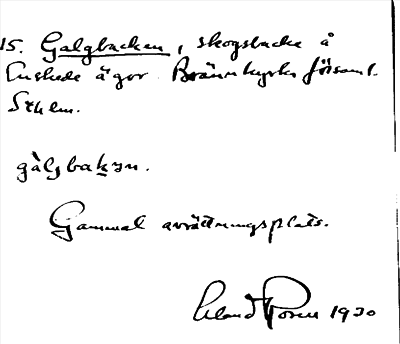 15. Galgbacken, skogsbacke å
Enskede ägor. Brännkyrka församl.
Sthlm.
gàljbakən.
Gammal avrättningsplats.
Erland Rosell 1930